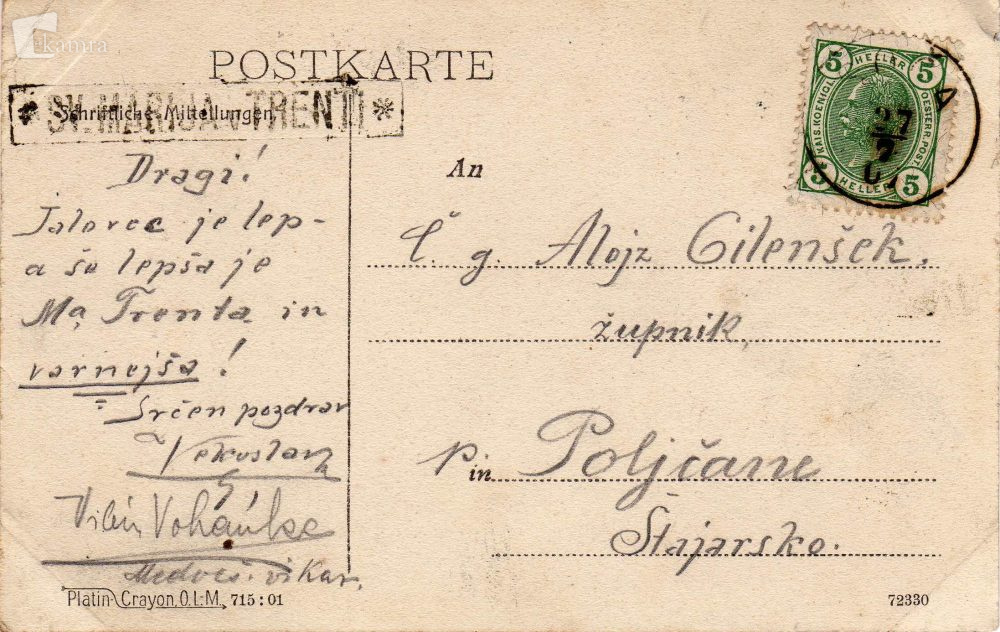 kamra
POSTKARTE
* SV. MARIJA V TRENTI *
Schriftliche Mitteilungen.
Dragi!
Jalovec je lep-
a še lepša je
Trenta in
varnejša!
Srčen pozdrav
Vekoslav
vikar.
An
Č. g. Alojz Cilenšek.
župnik,
p. in Poljčane
Štajarsko.
5 HELLER 5
KAIS. KOENIGL. OESTERR. POST.
5 HELLER 5
27
Platin-Crayon, O.L.M. 715:01
72330